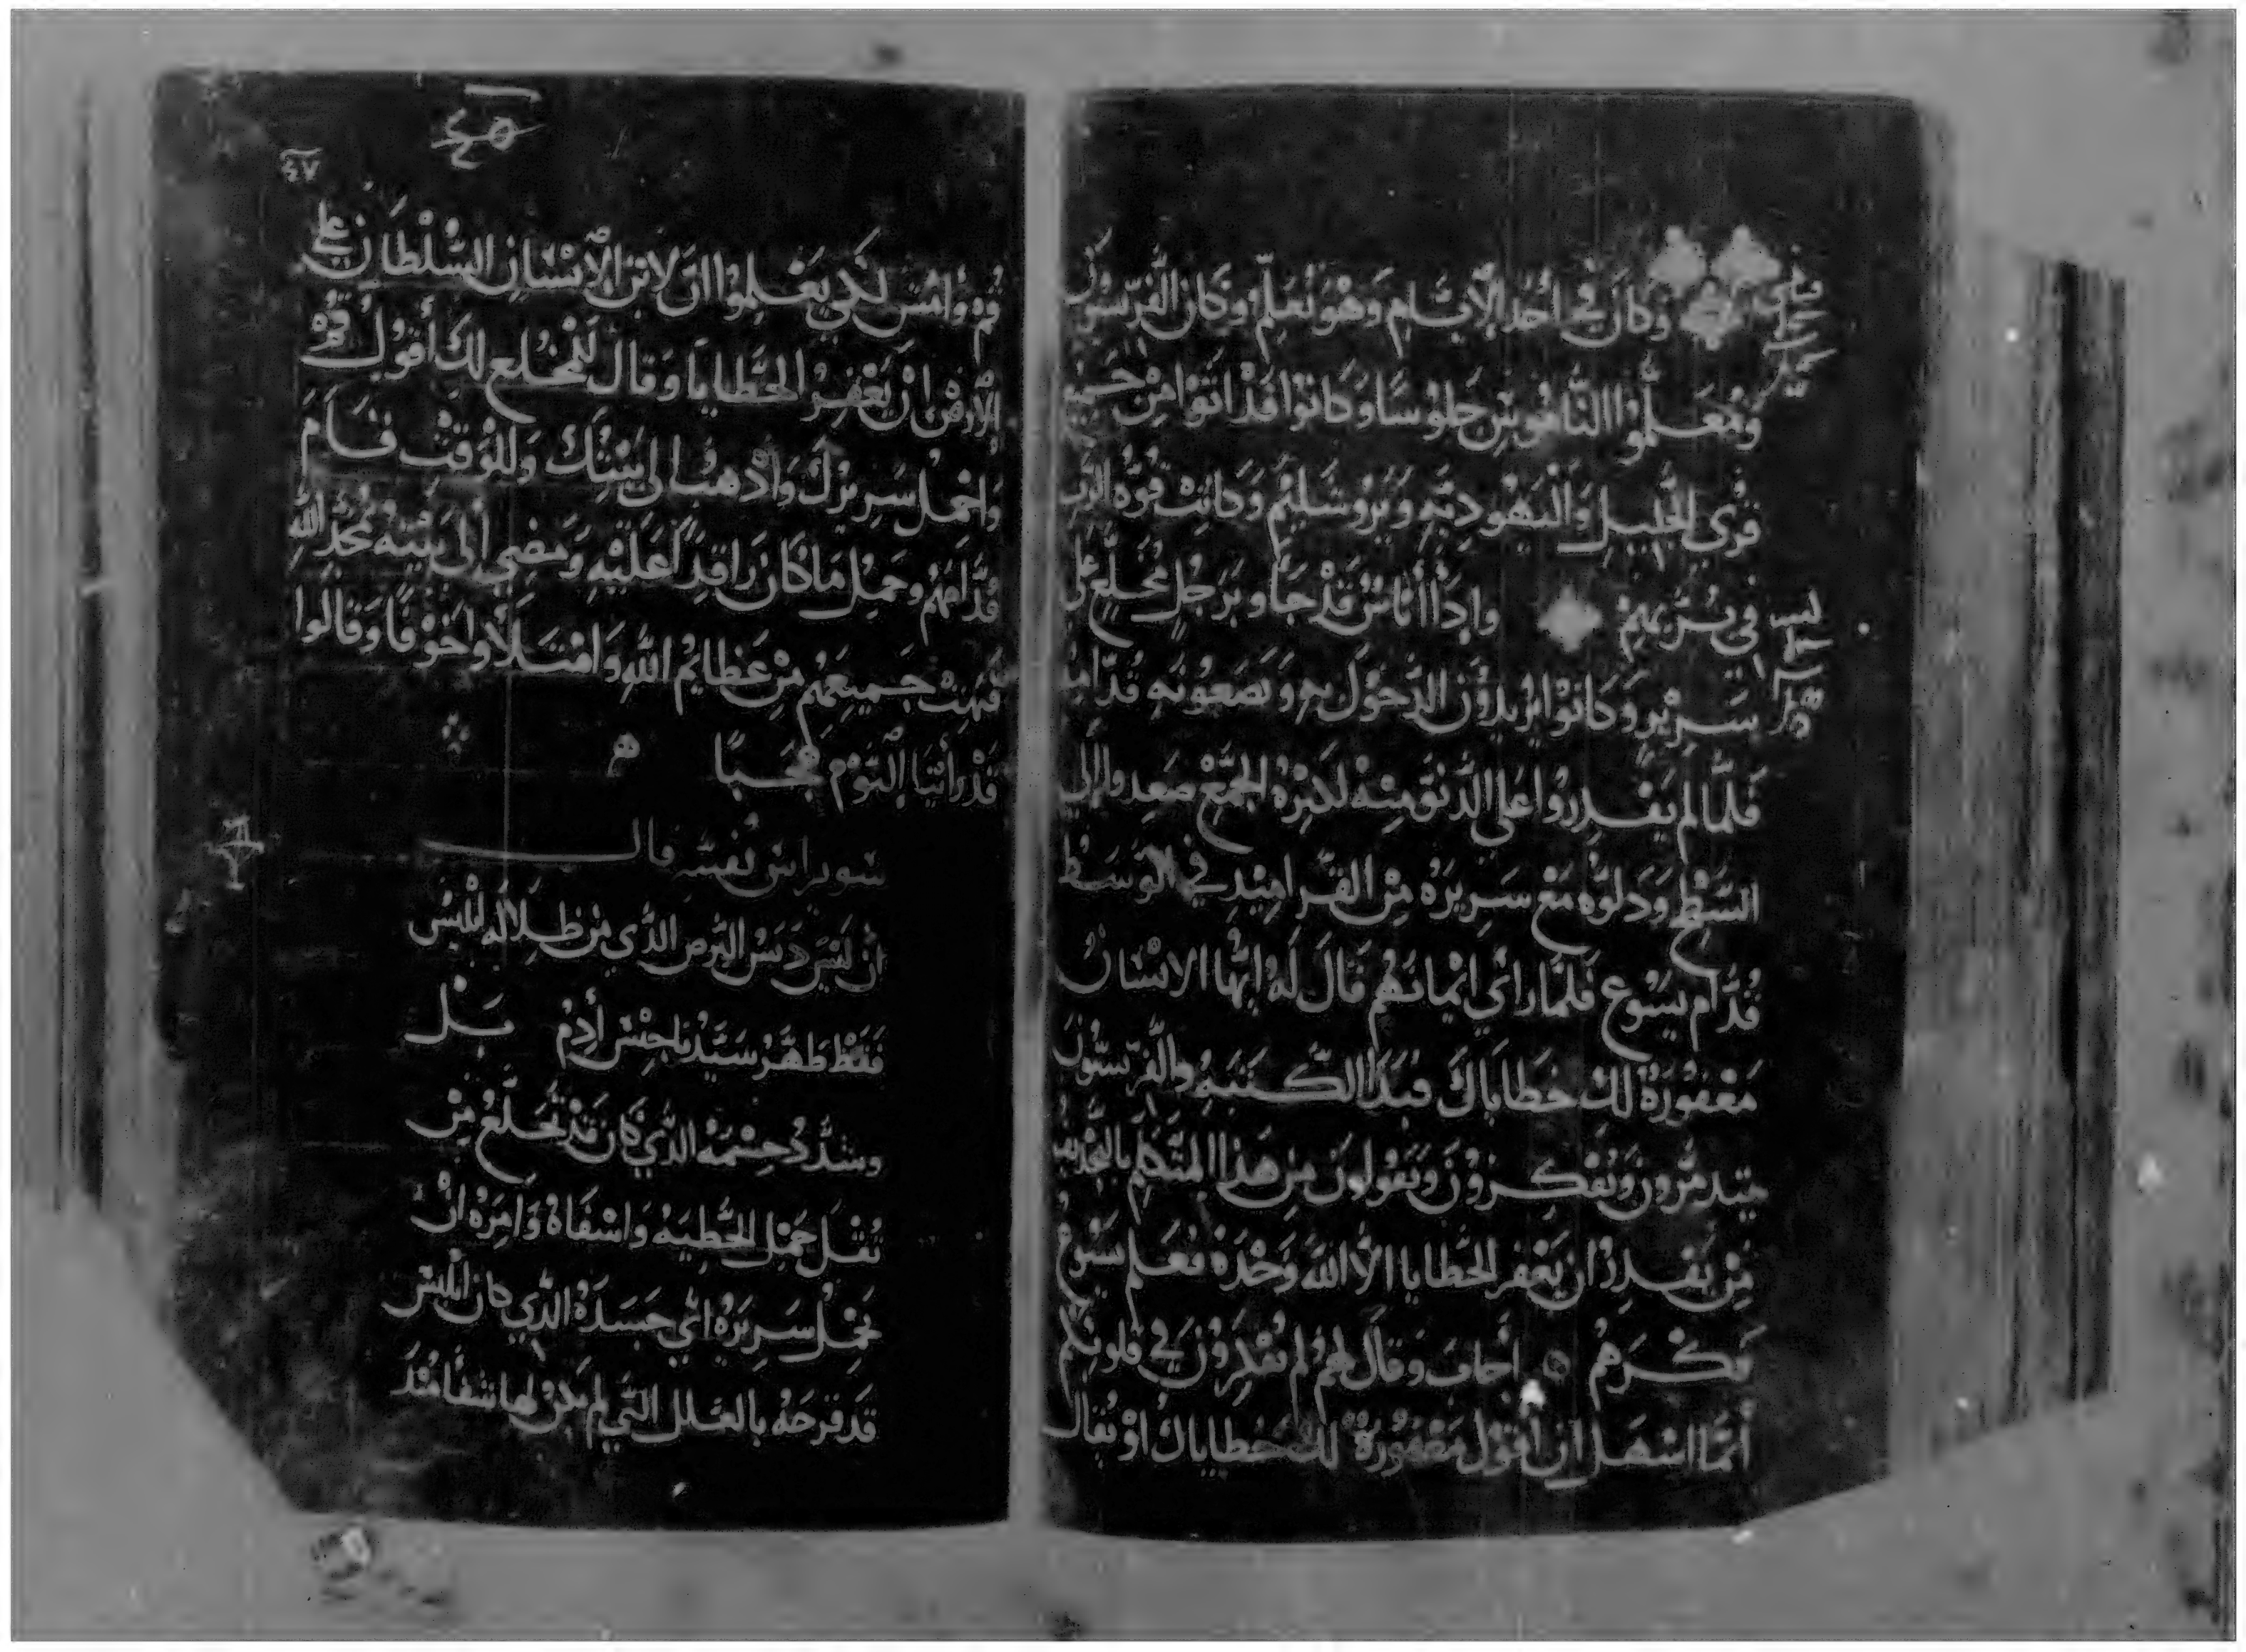 وَكَانَ فِي أحَد الأيَّامِ وَهْوَ يُعَلِّمُ وَكَانَ الفَرّيسيُّون
وَمُعَلِّمُوا النَّامُوسِ جَلُوْسًا وَكَانُوْا قَدْ اتَوْا مِنْ جَميْعِ
قُري الجَلِيلِ وَاليَهُوديّهِ وَيَرُوشَلِيْمَ وَكانتْ قُوَّه الرَّبِ
في تُبرّيهِمْ وَاِذَا أُنَاسٌ قَدْ جَاُوْ بَرَجُلٍ مُخَلَّعٍ عَلي
سَرِيْرٍ وَكَانَوْا يُرِيدُوْنَ الدُّخوْلَ بهِ وَيَضَعُونهِ قُدَّامهُ
فَلَّما لم يَقْدِرُوا عَلي الدُّنوِّ مِنْهُ لَكثرَهُ الجَمْع صَعِدوا إلَي
السَّطْحِ وَدَلوَّه مَعْ سَرِيرَهُ مِنْ القَرامِيْدِ في الوَسَطْ
قُدَّام يَسُوْعَ فَلمَّا رَائي ايْمانَهُم قَالَ لَهُ ايُّها الانسَان
مَغْفُوْرَهٌ لَكَ خَطايَاكَ فبَدَا الكَتَبَهُ والفَرّيسيُّونَ
يَتَدمَّرونَ وَيُفَكِرُوْنَ وَيَقولُونَ مِنْ هَذا المتَكلِّم بالتجديف
مَنْ يَقدِرُ انْ يَغْفر الخَطايا الاَّ اللهُ وَحْدَهُ فعَلم يَسُوعُ
فِكْرَهُمْ أجَابَ وَقالَ لَهُم لم تُفكِرُوْنَ في قلُوبِكُم
أيّمَا اسْهَل انْ أقُول مَغفُورَةٌ لكَ خَطاياكَ اوْ يُقال
قُم وَامْشِ لِكَي يَعْلمُوا انَّ لابْنِ الإنسَانِ السُّلْطَانُ عَلي
الأرْضِ انْ يَغْفِرَ الخَطايا وَقَال للمُخَلع لَكَ أقُولُ قُمْ
وَاحْمل سَرِيرَكَ وَاذهبْ إلي بَيْتِكَ وَللوَقتْ قَامَ
قُدَّامَهُم وَحَمَل مَا كَانَ رَاقِدًا عَلَيْهِ وَمَضي إلَي بَيْتِهُ يُمجّد اللهَ
فبُهت جَميعَهُم مِنْ عَظايم اللهِ وَامْتَلاُوا خَوْفًا وَقالُوا
قَدْ رَأَيْنَا اليَوْم عَجَبًا
سويراس قال
انْ لَيْسَ البَرص الذي مِنْ ابليس
فَقَطْ طَهَّر سَيّدُنا جنْس أدَم بَل
وشَدَّدَ جسْمَه الذي كانَ قدْ تَخلَّع مِنْ
ثُقْل حَمْل الخَطِيَهُ وَاشفَاهُ وَأمَرَهُ انْ
يَحْمِل سَرِيرَهُ اي جَسَدَهُ الَّذي كانَ ابْليس
قَدْ قرحَهُ بالعلَل التي لم يَكُنْ لها شفا مُنْذ
٤٥
٤٧